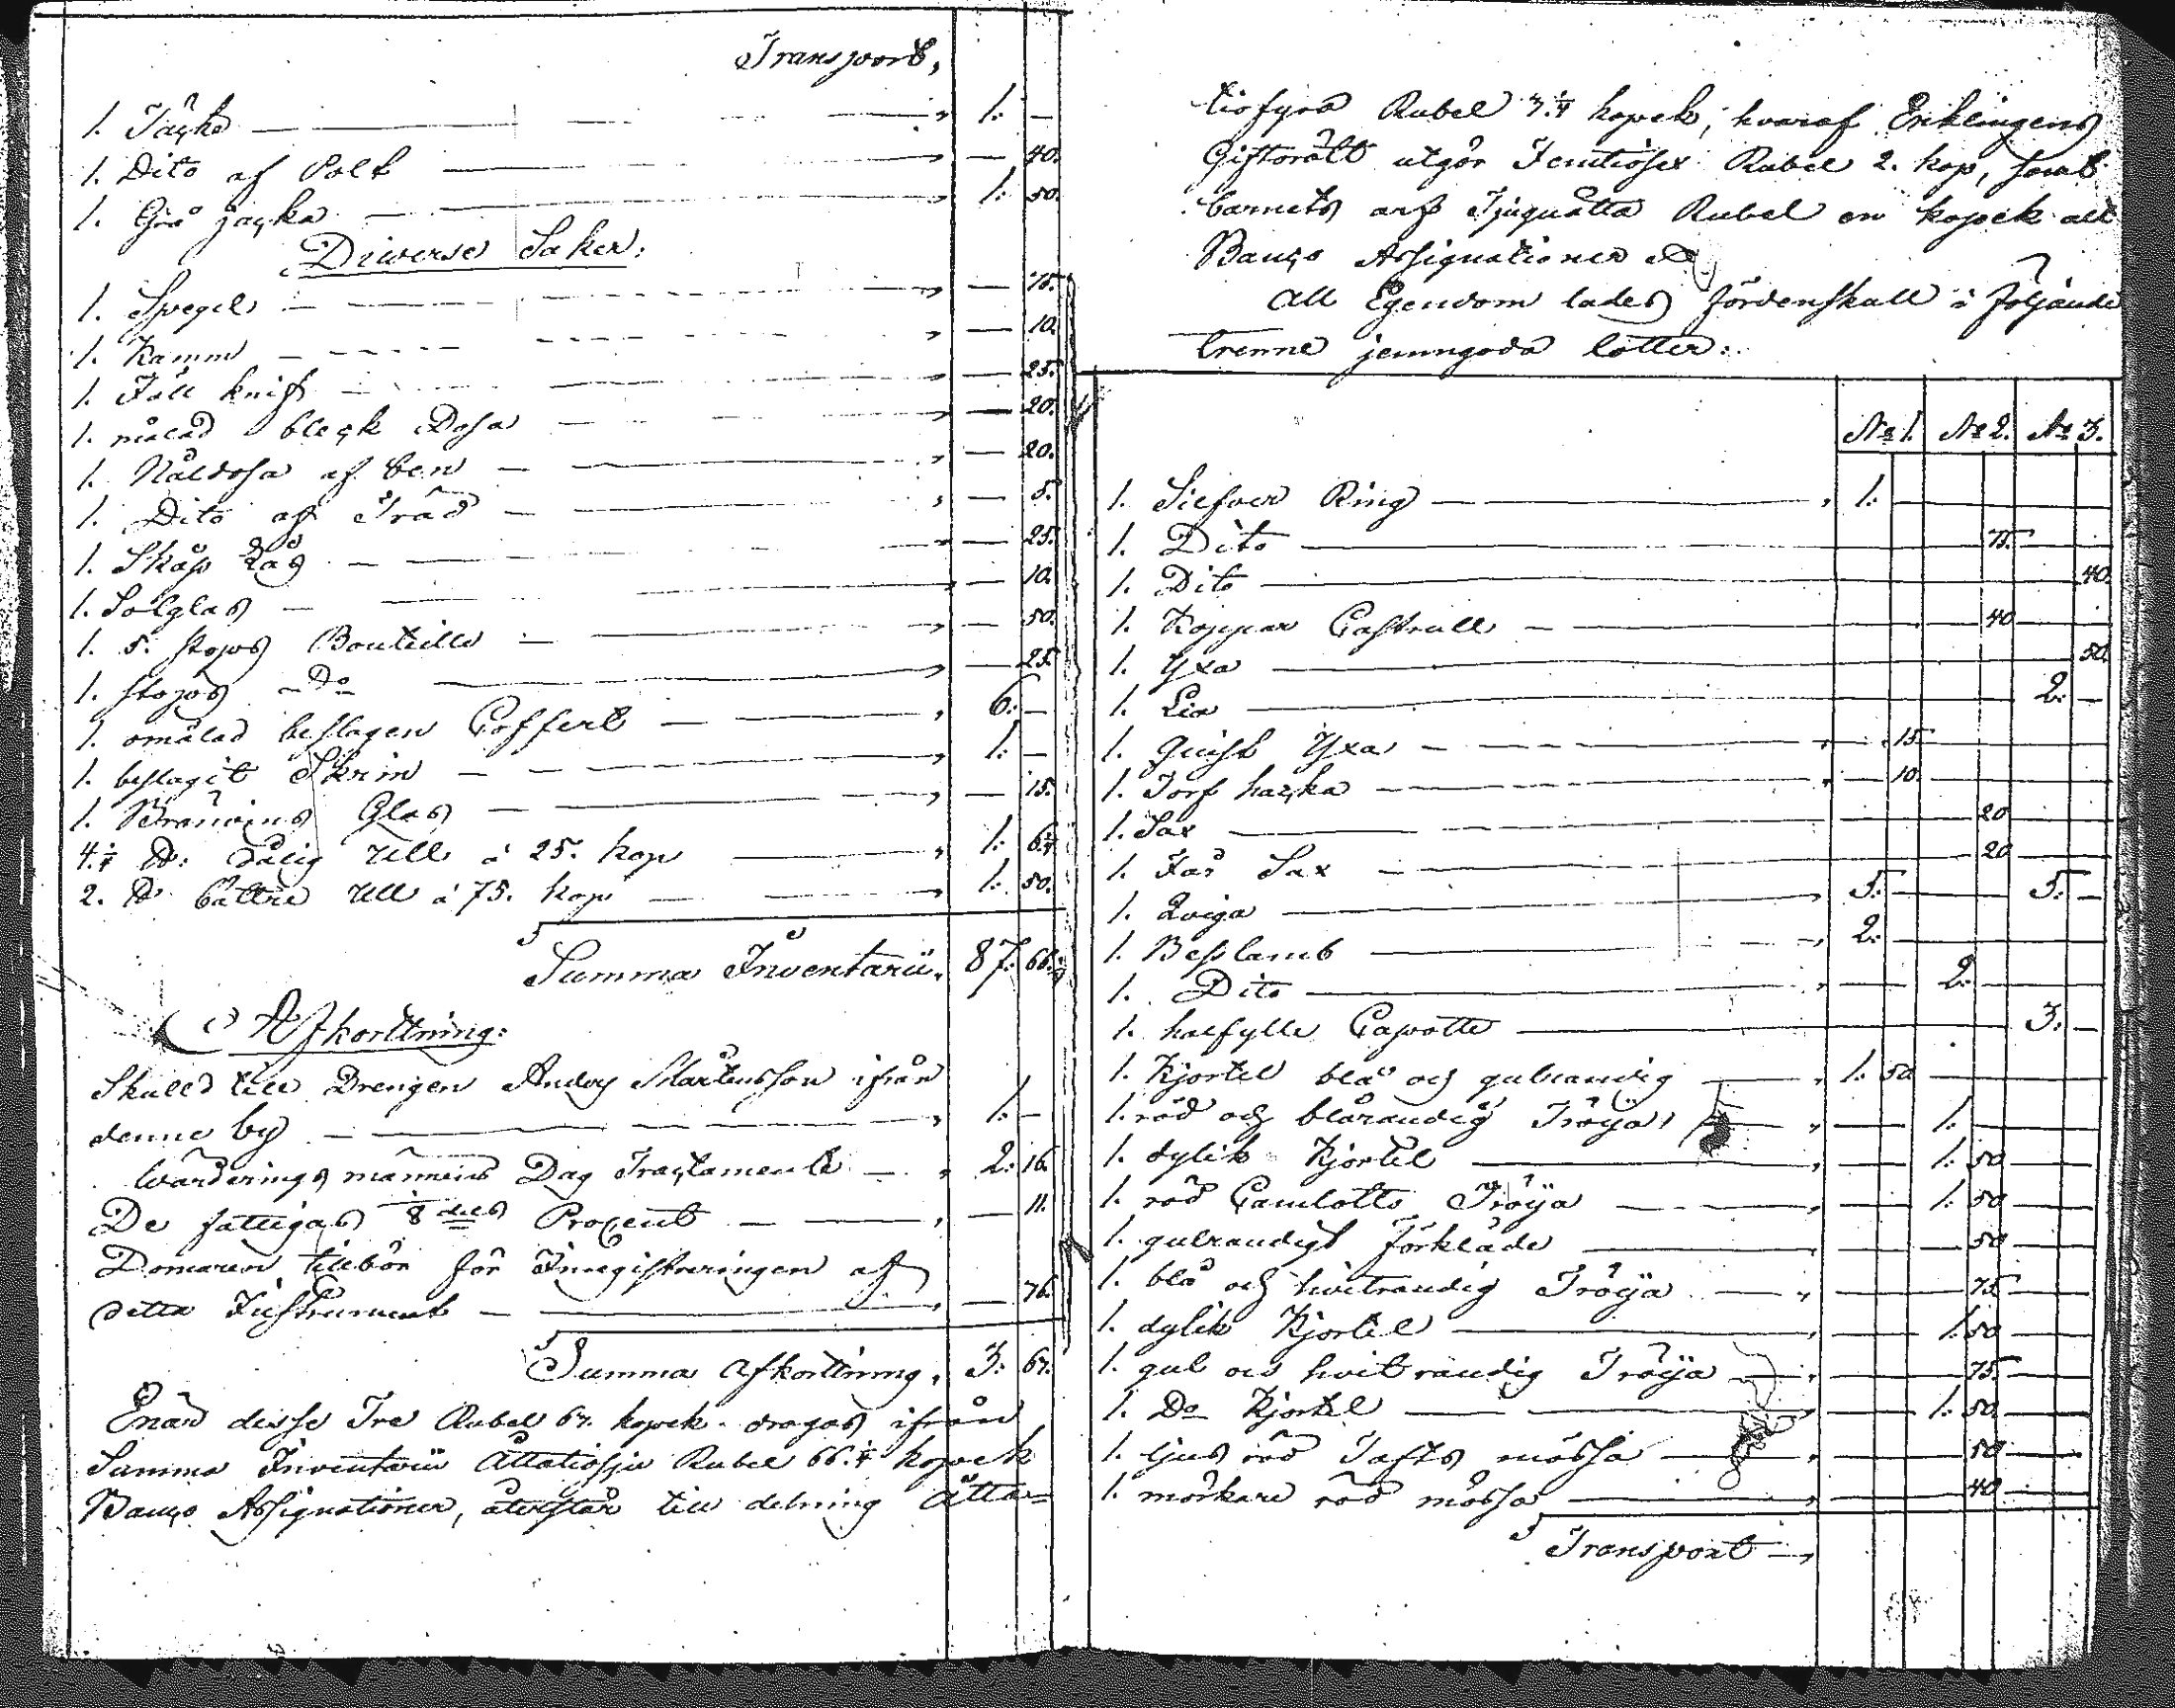 Transport,
1. Täcke — 1. —
1. Dito af Polt — 40.
1. Grå jacka — 1. 50.
Diverse Saker:
1. Spegel — 75.
1. Kamm — 10.
1. Fäll knif — 25.
1. målad bleck Dosa — 20.
1. Nåldosa af ben — 20.
1. Dito af Träd — 5.
1. Skåp Låg — 25.
1. Solglas — 10.
1. 5. stops Bouteille — 50.
1. stops Do — 25.
1. omålad beslagen Coffert — 6. —
1. beslagit Skrin — 1. —
1. Bränvins Glas — 15.
4.¼ ℔: dålig Ull à 25. kop — 1. 6¼
2. ℔ bättre Ull á 75. kop — 1. 50.
Summa Inventarii. 87. 66.¼
Afkorttning:
Skuld till Drengen Anders Mårtensson ifrån
denne by — 1. —
Wärderings männens Dag Tractamente — 2. 16.
De fattigas ⅛ dels Procent — 11.
Domaren tillbör för Inregistreringen af
detta Instrument — 76.
Summa Afkorttning, 3. 67.
Enär desse Tre Rubel 67. kopek dragas ifrån
Summa Inventarii Åttatiosju Rubel 66.¼ kopek
Banco Assignationer, återstår till delning Åtta=
tiofyra Rubel 3.¼ kopek, hvaraf Enklingens
Giftorätt utgör Femtiosex Rubel 2. kop, samt
barnets arf Tjuguåtta Rubel en kopek allt
Banco Assignationer
All Egendom lades fördenskull i följande
trenne jemngoda lotter:
No 1. No 2. No 3.
1. Silfver Ring — 1. —
1. Dito — 75. —
1. Dito — 40
1. Koppar Castrull — 40 —
1. Yxa — 50.
1. Lia — 2. —
1. Quist Yxa — 15 —
1. Torf hacka — 10. —
1. Sax — 20 —
1. Får Sax — 20 —
1. Qviga — 5. — 5. —
1. Besslamb — 2. —
1. Dito — 2. —
1. halfylle Capotte — 3. —
1. Kjortel blå och gulrandig — 1. 50 —
1. röd och blårandig Tröija — 1. —
1. dylik Kjortel — 1. 50 —
1. röd Camlotts Tröija — 1. 50 —
1. gulrandigt Förkläde — 50 —
1. blå och hvitrandig Tröija — 75 —
1. dylik Kjortel — 1. 50 —
1. gul och hvit randig Tröija — 75 —
1. Do Kjortel — 1. 50 —
1. ljus röd Tafts mössa — 50 —
1. mörkare röd mössa — 40 —
Transport —